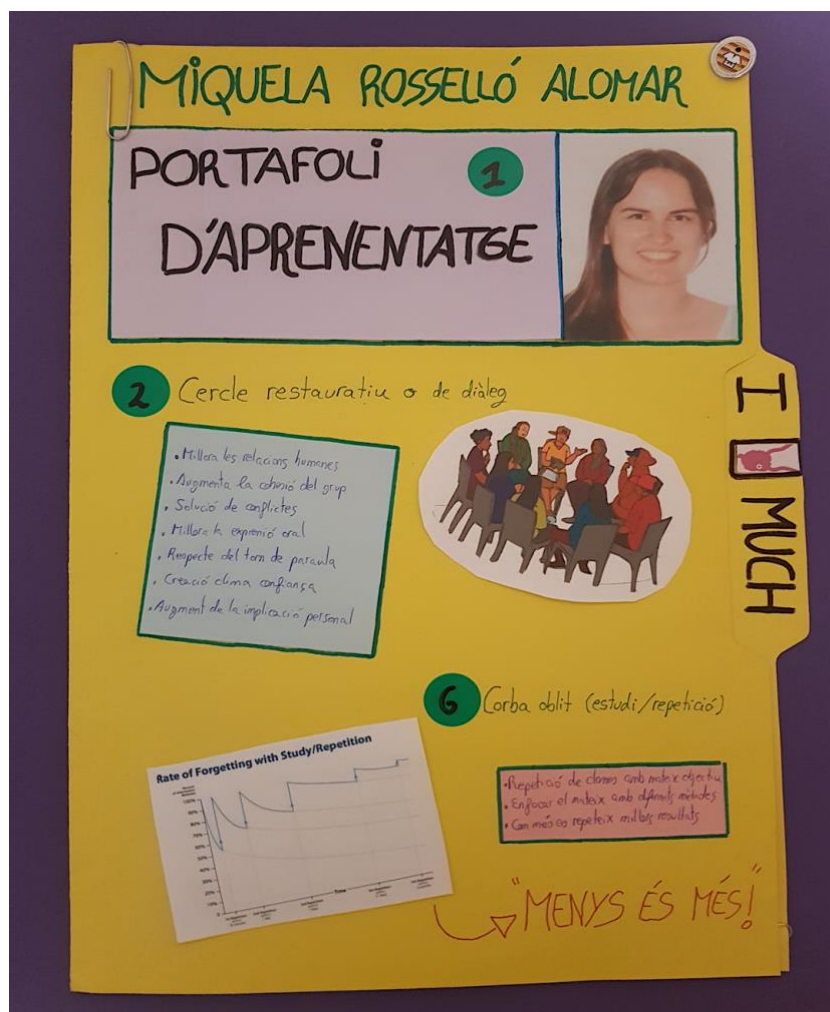 MIQUELA ROSSELLÓ ALOMAR
PORTAFOLI
1
D'APRENENTATGE
2 Cercle restauratiu o de diàleg
• Millora les relacions humanes
• Augmenta la cohesió del grup
• Solució de conflictes
• Millora la expressió oral
• Respecte del torn de paraula
• Creació clima confiança
• Augment de la implicació personal
I
MUCH
6 Corba oblit (estudi/repetició)
Rate of Forgetting with Study/Repetition
100%
90%
80%
70%
60%
50%
40%
30%
20%
10%
0
Time
• Repetició de classes amb mateix objectiu
• Enfocar el mateix amb diferents mètodes
• Com més es repeteix millors resultats
"MENYS ÉS MÉS!"